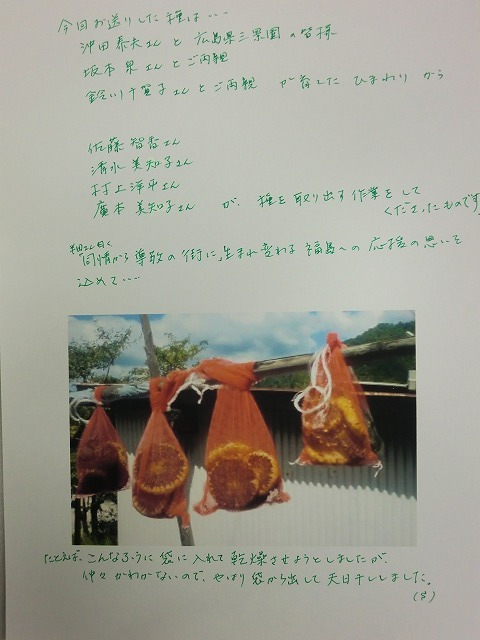 今回お送りした種は・・・・
沖田 泰夫さんと 広島県三景園の皆様
坂本 果さんとご両親
鈴川千賀子さんとご両親 が育てた ひまわり から
佐藤 智香さん
清水 美知子さん
村上 洋平さん
廣本 美知子さん が、種を取り出す作業をして
くださったものです
「同情から尊敬の街に」生まれ変わる 福島への 応援の思いを
込めて・・・・
たとえば、こんなふうに 袋に入れて 乾燥させようとしましたが、
仲々 かわかないので、やはり 袋から出して 天日干ししました。